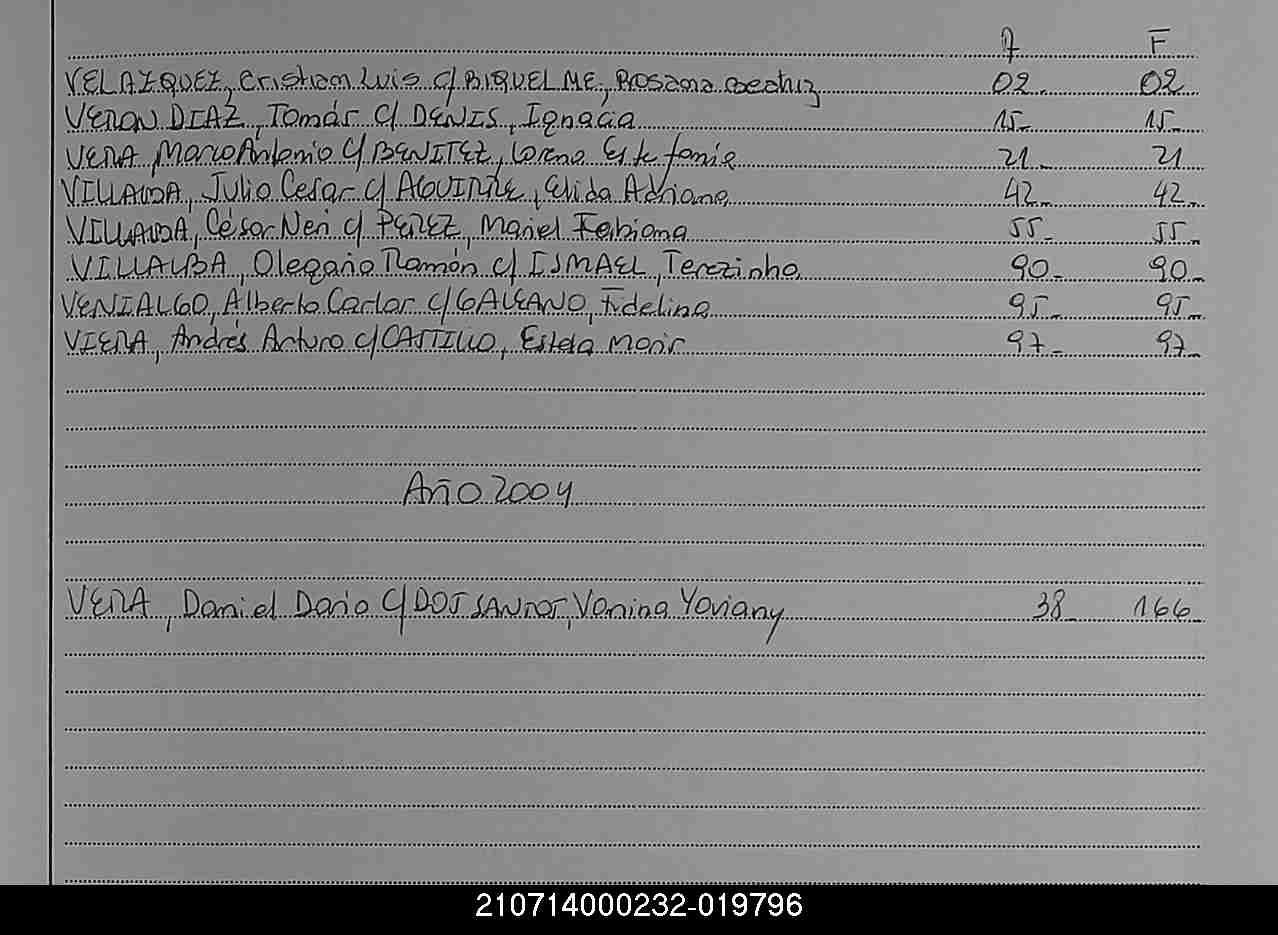 A F
VELAZQUEZ, Cristham Luis c/ RIQUELME, Rossana Beatriz 02. 02
VERON DIAZ, Tomás c/ DENIS, Ignacia 15- 15-
VERA, Marco Antonio c/ BENITEZ, Lorena Estefania 21- 21
VILLALBA, Julio Cesar c/ AGUIRRE, Elida Adriana 42- 42-
VILLALBA, César Neri c/ PEREZ, Mariel Fabiana 55- 55-
VILLALBA, Olegario Ramón c/ ISMAEL, Terezinha 90- 90-
VENIALGO, Alberto Carlos c/ GALEANO, Fidelina 95- 95-
VIERA, Andrés Arturo c/ CASTILLO, Estela Maris 97- 97-
Año 2004
VERA, Daniel Dario c/ DOS SANTOS, Vanina Yoviany 38- 166-
210714000232-019796